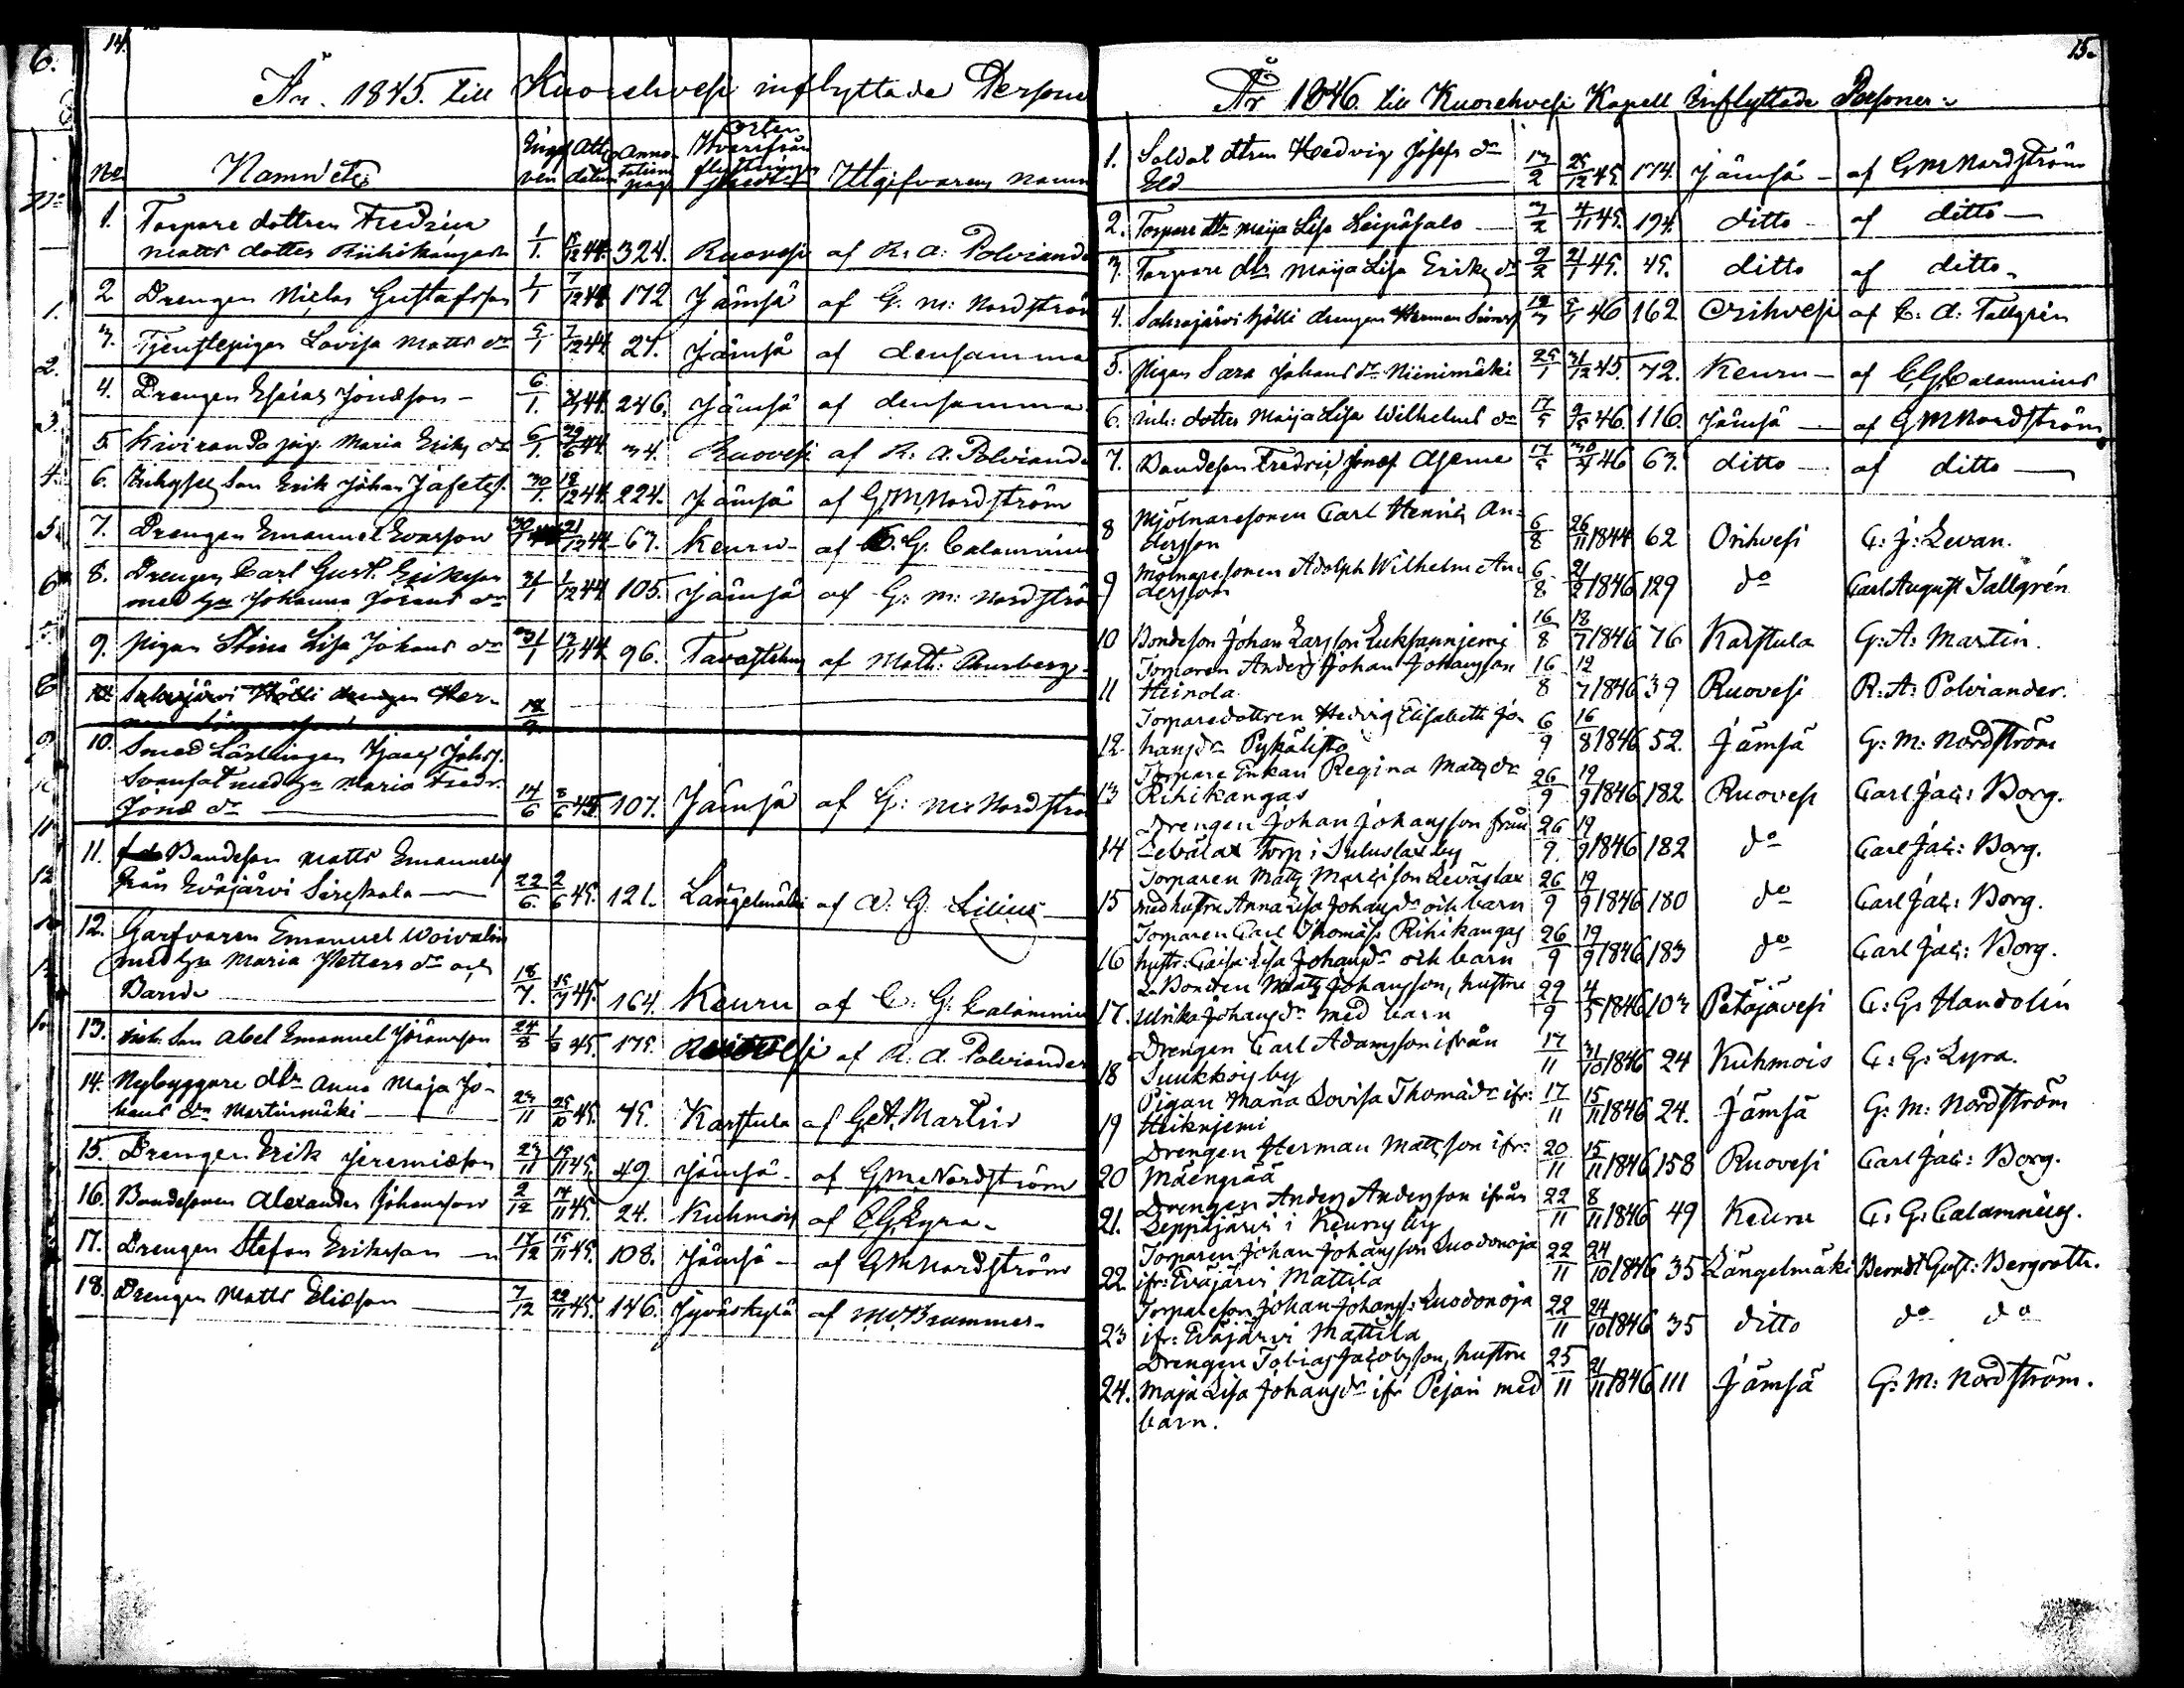 14.
År. 1845. till Kuorehvesi inflyttade Persone
No Namn etc Ingif ven Att datum Anno tations pag. Orten Hvarifrån flyttning skedt Utgifvarens namn
1. Torpare dottren Fredrica
Matts dotter Riihikangas 1/1 15/12 44. 324. Ruovesi af R. A: Polviande
2 Drengen Niclas Gustafsson 1/1 7/12 44. 172 Jämsä af G. M: Nordström
3. Tjenstepigan Lovisa Matts dr 5/1 7/12 44. 27. Jämsä af densamma
4. Drengen Esaias Jonæson - 6/1. 44. 246. Jämsä af densamma
5. Kiviranda pig. Maria Eriks dr 6/1. 29/6 44 34. Ruovesi af R. A. Polviande
6. Inhyses Son Erik Johan Jafets. 30/1. 18/12 44. 224. Jämsä af G.M. Nordström
7. Drengen Emanuel Evarson 30/1 21/12 44 67. Keuru- af C. G. Calamnius
8. Drengen Carl Gust. Eriksson
med hu Johanna Jörans dr 31/1 1/12 44. 105. Jämsä af G: M: Nordströ
9. Pigan Stina Lisa Johans dr 31/1 13/11 44 96. Tavastehus af Math:
10. Sahrajärvi Hölli drengen Her-
10. Smed Lärlingen Isaac Johs.
Svensat med hu Maria Fredr.
Jonæ dr 14/6 8/6 45. 107. Jämsä af G: M: Nordströ
11. Bondeson Matts Emanuels
från Eväjärvi Sirkkala 22/6. 2/6 45. 121. Längelmäki af A: G: Lilius
12. Garfvaren Emanuel Woivalin
med hu Maria Petters dr och
Barn 18/7. 15/7 45. 164. Keuru af C: G: Calamniu
13. Inh. Son Abel Emanuel Jöransson 24/8 45. 175. Ruovesi af R. A. Polviander
14. Nybyggare dtr Anna Maja Jo-
hans dr Martinmäki 23/11 25/10 45. 75. Karstula af G.A. Martin
15. Drengen Erik Jeremiæson 23/11 15/11 45. 49. Jämsä- af G.M. Nordström
16. Bondesonen Alexander Johansson 2/12 14/11 45. 24. Kuhmois af C.G. Lyra-
17. Drengen Stefan Eriksson 17/12 15/11 45. 108. Jämsä- af G.M. Nordström
18. Drengen Matts Eliæson 7/12 22/11 45. 146. Jyväskylä af M.W. Brummer-
15.
År 1846. till Kuorehvesi Kapell Inflyttade Personer.
1. Soldat dttren Hedvig Josefs dr
Eld 13/2 25/12 45. 174. Jämsä- af G M Nordström
2. Torpare dtr Maija Lisa Leipäsalo 3/2 4/11 45. 194. ditto- af ditto-
3. Torpare dtr Maija Lisa Eriks dr 9/2 21/1 45. 45. ditto af ditto-
4. Sahrajärvi Hölli drengen Herman 5/1 46 162 Orihvesi af C. A: Tallgrén
5. Pigan Sara Johans dr Niinimäki 25/1 31/12 45. 72. Keuru- af C.G. Calamnius
6. Inh: dotter Maija Lisa Wilhelms dr 17/5 46. 116. Jämsä- af G M Nordström
7. Bondeson Fredric Josef Asame 17/5 46 67. ditto- af ditto-
8 Mjölnaresonen Carl Henric An-
dersson 6/8 26/11 1844 62 Orihvesi C: J: Levan.
9 Mölnaresonen Adolph Wilhelm An-
dersson 6/8 21/2 1846 129 do Carl August Tallgrén
10 Bondeson Johan Larsson Lukkanniemi 16/8 18/7 1846 76 Karstula G: A: Martin.
11 Torparen Anders Johan Johansson
Heinola 16/8 12/7 1846 39 Ruovesi R: A: Polviander.
12. Torparedottren Hedvig Elisabeth Jo-
hansdr Pykälistö 6/9 16/8 1846 52. Jämsä G: M: Nordström
13 Torpare Enkan Regina Matts dr
Rihikangas 26/9 19/9 1846 182 Ruovesi Carl Jac: Borg.
14 Drengen Johan Johansson från
Leväslax Torp i Suluslax by 26/9. 19/9 1846 182 do Carl Jac: Borg.
15 Torparen Matts Mariison Leväslax
med hustru Anna Lisa Johansdr och barn 26/9 19/9 1846 180 do Carl Jac: Borg.
16 Torparen Carl Thomæs. Rihikangas
hustr: Caisa Lisa Johansdr och barn 26/9 19/9 1846 183 do Carl Jac: Borg.
17. L. Bonden Matts Johansson, hustru
Ulrika Johansdr med barn 29/9 4/5 1846 103 Petäjävesi C: G: Handolin
18 Drengen Carl Adamsson ifrån
Suukkois by 17/11 31/10 1846 24 Kuhmois C: G: Lyra.
19 Pigan Maria Lovisa Thomædr ifr:
Heikniemi 17/11 15/11 1846 24. Jämsä G: M: Nordström
20 Drengen Herman Mattsson ifr:
Mäenpää 20/11 15/11 1846 158 Ruovesi Carl Jac: Borg.
21. Drengen Anders Andersson ifrån
Leppäjärvi i Keuru by 22/11 8/11 1846 49 Keuru C: G: Calamnius.
22. Torparen Johan Johansson Luodonoja
ifr: Eväjärvi Mattila 22/11 24/10 1846 35 Längelmäki Berndt Gust: Bergroth.
23 Torpareson Johan Johanss: Luodonoja
ifr: Eväjärvi Mattila 22/11 24/10 1846 35 ditto do do
24. Drengen Tobias Jacobsson, hustru
Maja Lisa Johansdr ifr Pejari med
barn. 25/11 21/11 1846 111 Jämsä G: M: Nordström.